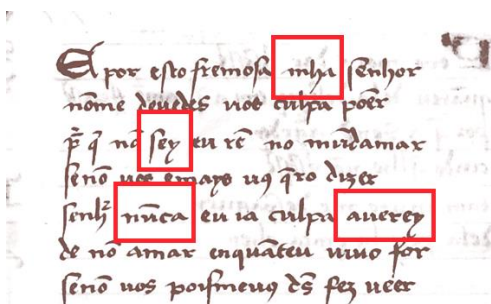 E por esto fremosa mha senhor
nōme deuedes uos culpa poēr
p̄r q̄ nō sey eu rē no mūdamar
senō uos emays uꝯ q̄ro dizer
senhʳ nūca eu ia culpa auerey
de nō amar enquāteu uiuo for
senō uos poismeuꝯ d̄s fez ueer